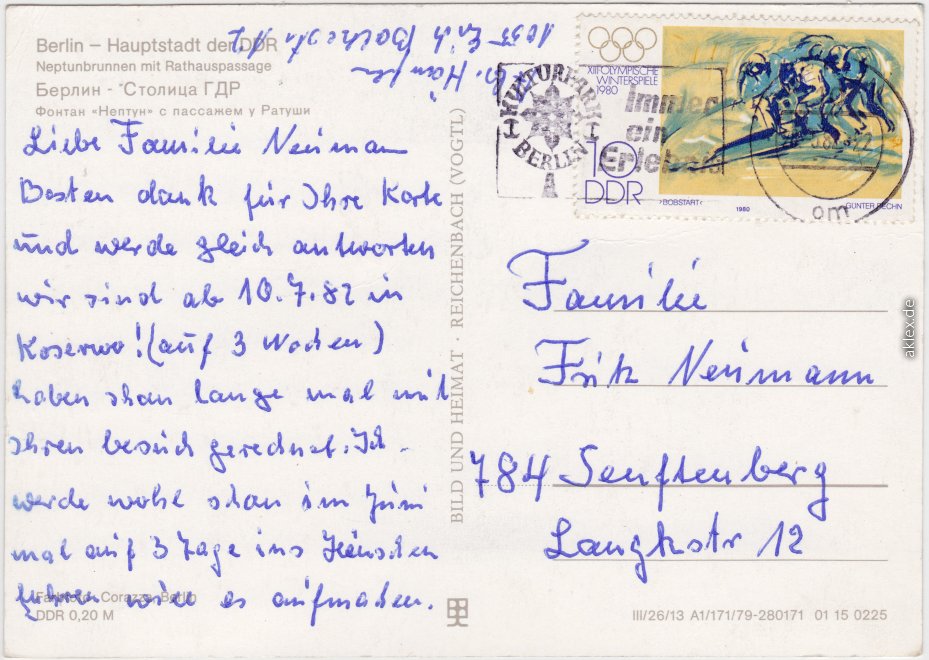 Berlin – Hauptstadt der DDR
Neptunbrunnen mit Rathauspassage
Берлин - Столица ГДР
Фонтан «Нептун» с пассажем у Ратуши
Liebe Familie Neumann
Besten dank für Ihre Karte
und werde gleich antworten
wir sind ab 10.7.82 in
Koserow! (auf 3 Wochen)
haben schon lange mal mit
Ihren besuch gerechnet. Ich
werde wohl schon im Juni
mal auf 3 Tage ins Häuschen
fahren will es aufmachen.
Farbfoto: Corazza, Berlin
DDR 0,20 M
BILD UND HEIMAT · REICHENBACH (VOGTL)
1055 Erich
XIII. OLYMPISCHE
WINTERSPIELE
1980
10
DDR
›BOBSTART‹
1980
GÜNTER RECHN
KULTURPARK
BERLIN
Immer
ein
Erlebnis
Familie
Fritz Neumann
784 Senftenberg
Langkstr 12
III/26/13 A1/171/79-280171 01 15 0225
aklex.de